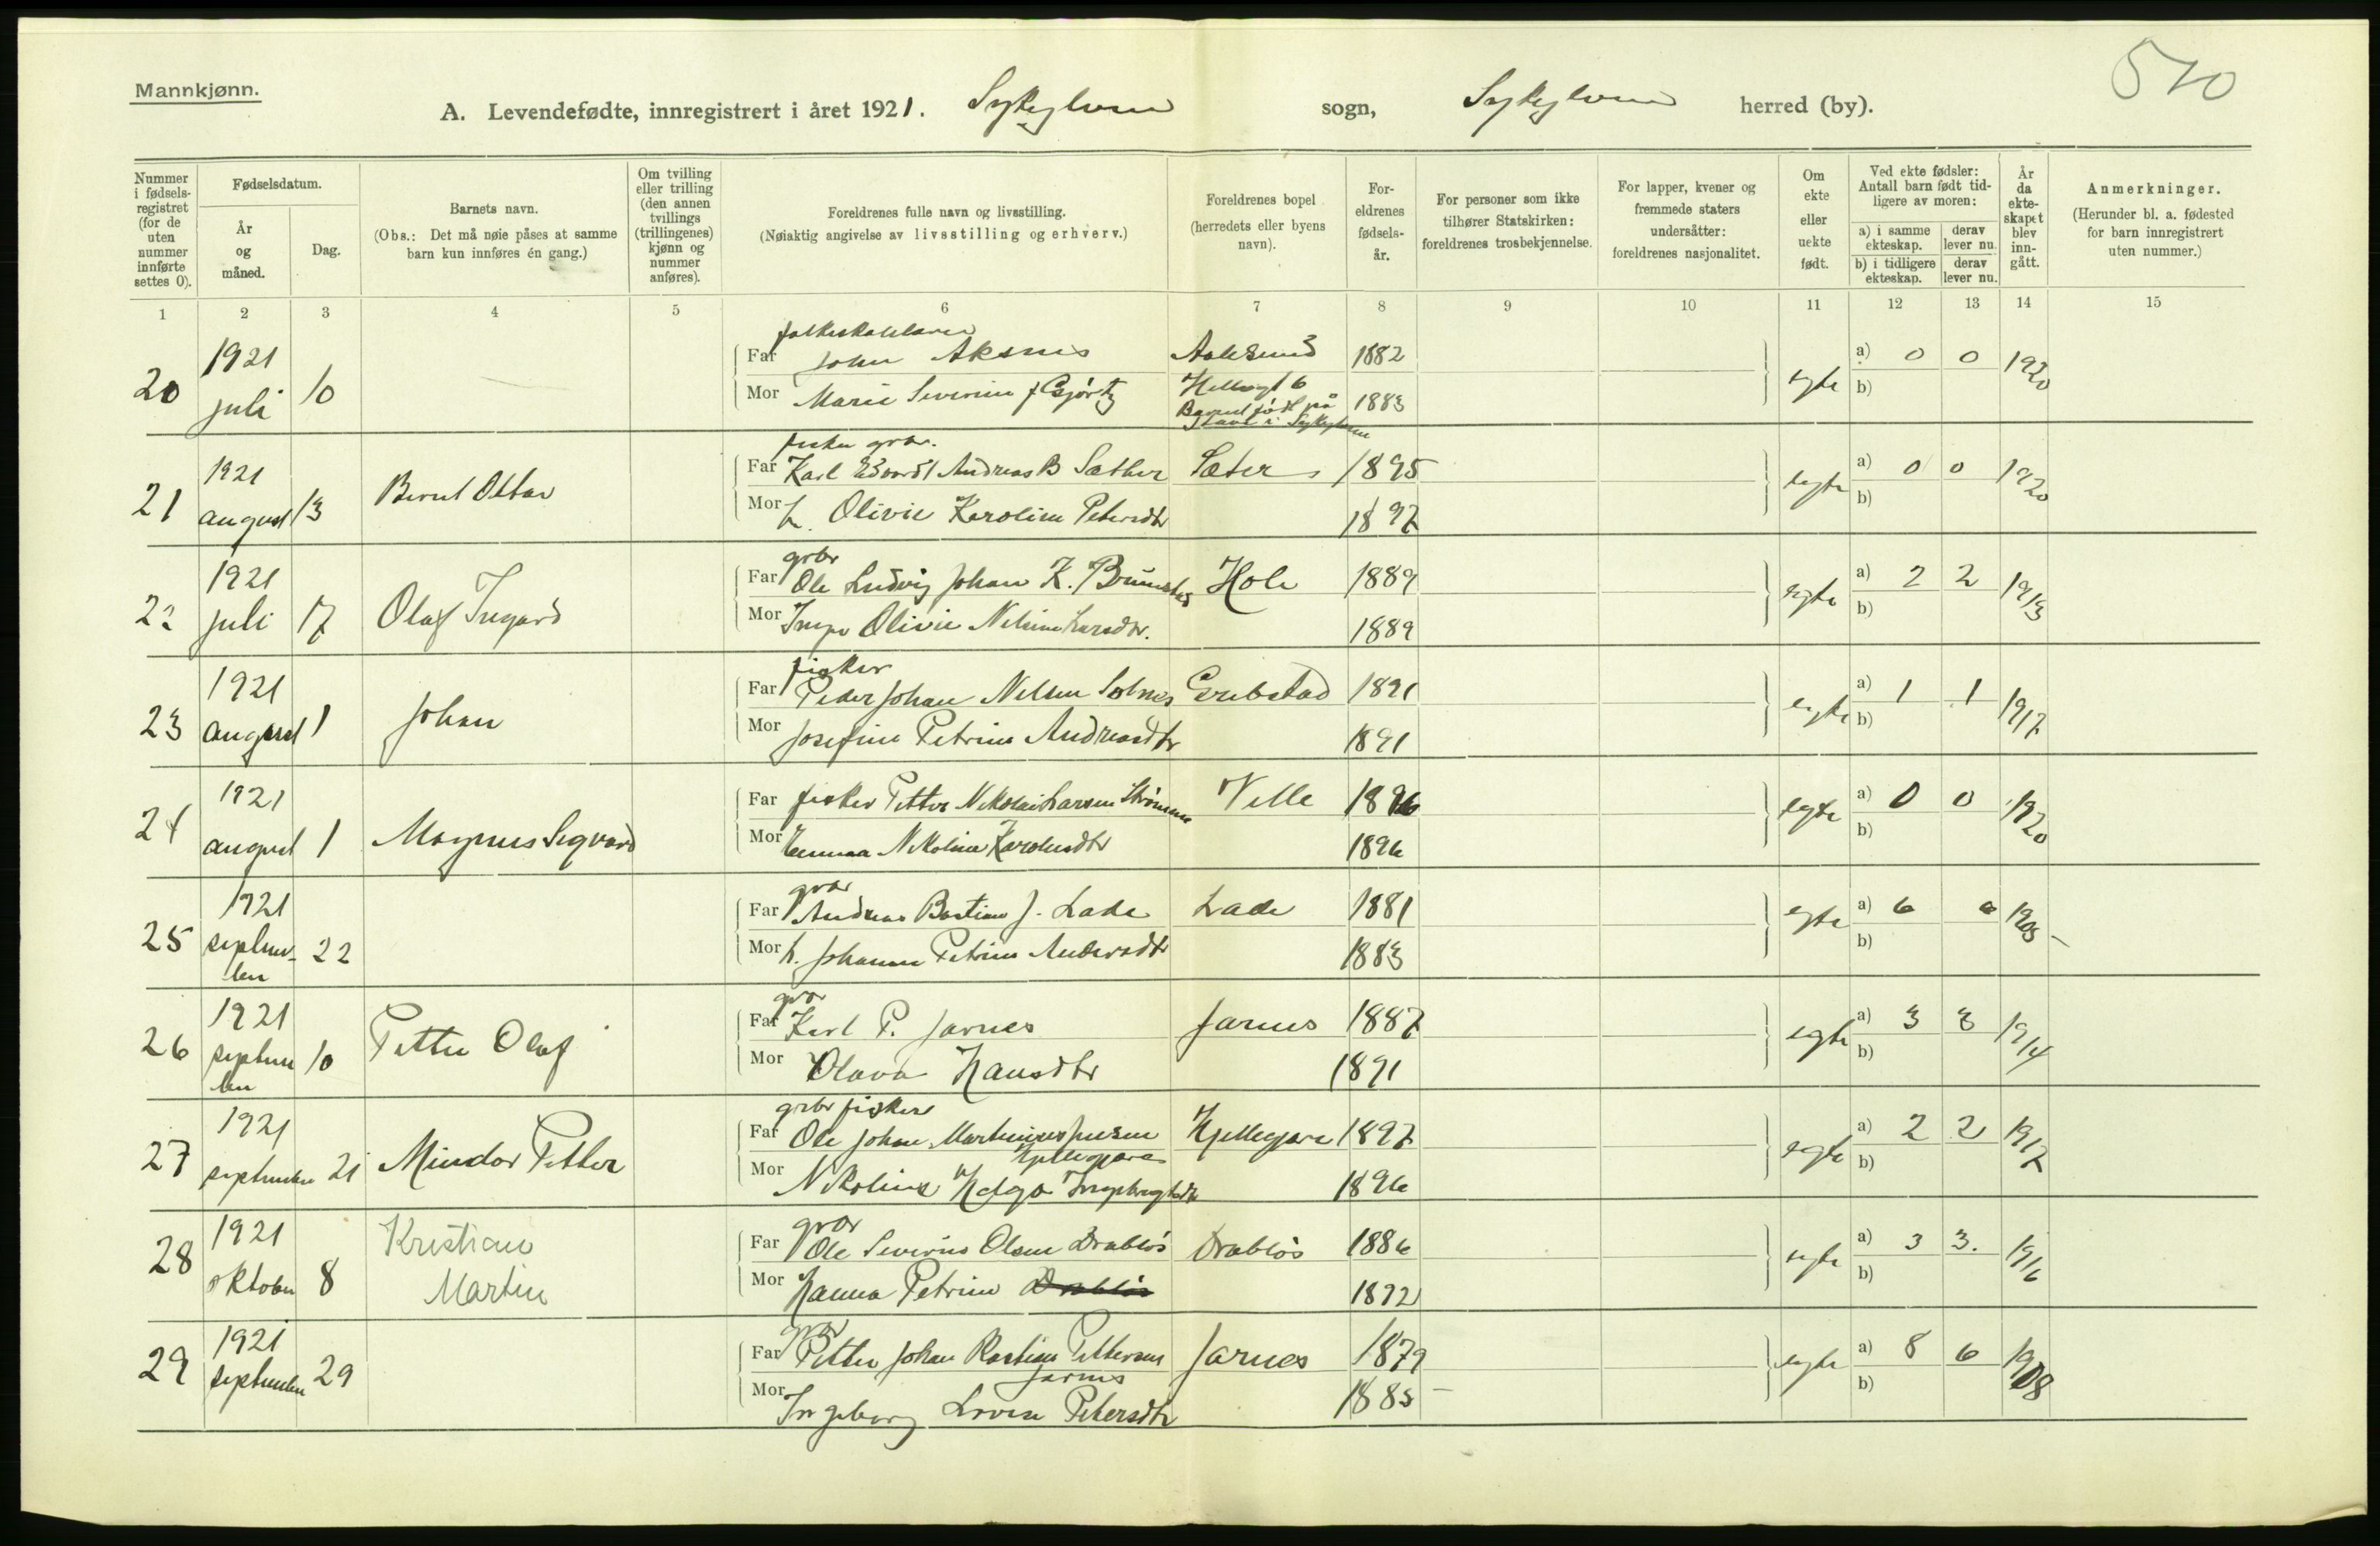 Mannkjønn.
510
A. Levendefødte, innregistrert i året 1921. Sykylven sogn, Sykylven herred (by).
Nummer i fødsels-registret (for de uten nummer innførte settes 0).
Fødselsdatum.
År og måned.
Dag.
Barnets navn.
(Obs.: Det må nøie påses at samme barn kun innføres én gang.)
Om tvilling eller trilling (den annen tvillings (trillingenes) kjønn og nummer anføres).
Foreldrenes fulle navn og livsstilling.
(Nøiaktig angivelse av livsstilling og erhverv.)
Foreldrenes bopel (herredets eller byens navn).
For-eldrenes fødsels-år.
For personer som ikke tilhører Statskirken: foreldrenes trosbekjennelse.
For lapper, kvener og fremmede staters undersåtter: foreldrenes nasjonalitet.
Om ekte eller uekte født.
Ved ekte fødsler: Antall barn født tid-ligere av moren:
a) i samme ekteskap.
derav lever nu.
b) i tidligere ekteskap.
derav lever nu.
År da ekte-skapet blev inn-gått.
Anmerkninger.
(Herunder bl. a. fødested for barn innregistrert uten nummer.)
1 2 3 4 5 6 7 8 9 10 11 12 13 14 15
folkeskolelærer
20 1921 juli 10
Far John Aksnes Aalesund 1882
Mor Marie Severine f. Gjørtz 1883
Barnet født på
i Sykylven
egte a) 0 0 1920
b)
fisker gbr.
21 1921 august 13 Bernt Ottar
Far Karl Edvard Andreas B Sæther Sæter 1895
Mor h. Olivie Karoline Petersdtr 1897
egte a) 0 0 1920
b)
grbr
22 1921 juli 17 Olaf Ingard
Far Ole Ludvig Johan K. Brunstad Hole 1889
Mor Inga Olivie Nelsine Larsdtr. 1889
egte a) 2 2 1913
b)
fisker
23 1921 august 1 Johan
Far Peder Johan Nelsen Solnes Grebstad 1891
Mor Josefine Petrine Andreasdtr 1891
egte a) 1 1 1917
b)
24 1921 august 1 Magnus Sigvard
Far fisker Petter Nikolai Larsen Strømme Velle 1896
Mor Emma Nikoline Karolusdtr 1896
egte a) 0 0 1920
b)
gbr
25 1921 september 22
Far Andreas Bastian J. Lade Lade 1881
Mor h. Johanne Petrine Andersdtr 1883
egte a) 6 6 1905
b)
gbr
26 1921 september 10 Petter Olaf
Far Karl P. Jarnes Jarnes 1887
Mor Olava Hansdtr 1891
egte a) 3 3 1914
b)
grbr fisker
27 1921 september 21 Mindor Petter
Far Ole Johan Martinius Jensen Hjellegjære 1897
Hjellegjære
Mor Nikoline Helga Ingebrigtsdtr 1896
egte a) 2 2 1917
b)
gbr
28 1921 oktober 8 Kristian Martin
Far Ole Severin Olsen Drabløs Drabløs 1886
Mor Hanna Petrine Drabløs 1892
egte a) 3 3. 1916
b)
gbr
29 1921 september 29
Far Petter Johan Bastian Pettersen Jarnes 1879
Jarnes
Mor Ingeborg Lovise Petersdtr 1885
egte a) 8 6 1908
b)